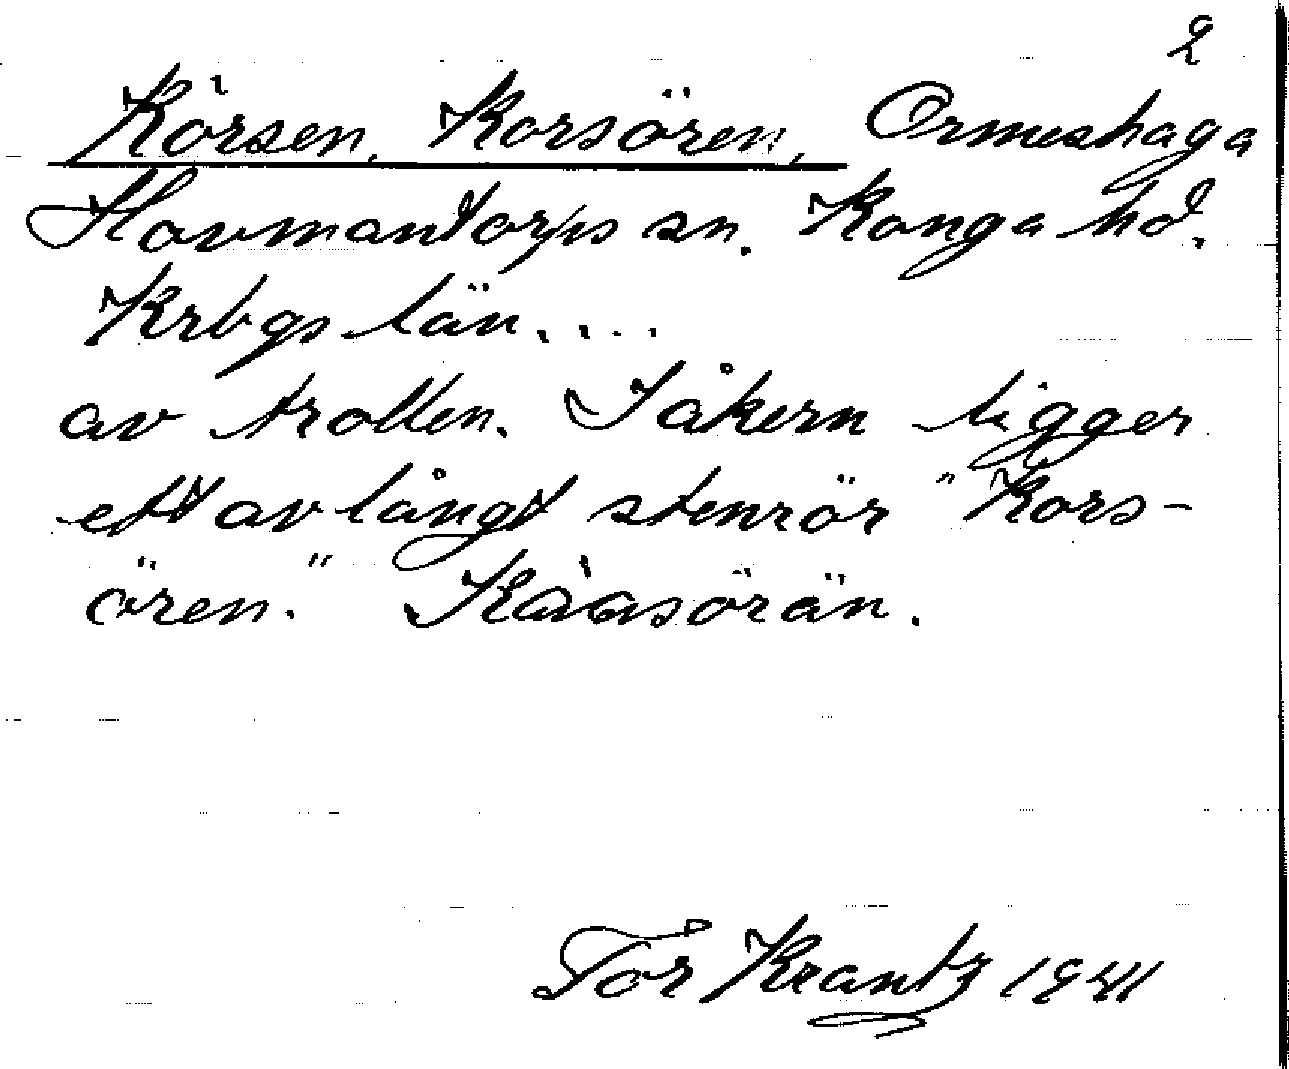 2
Kòrsen, Korsören, Ormeshaga
Hovmantorps sn. Konga hd.
Krbgs län. ...
av trollen. I åkern ligger
ett avlångt stenrör "Kors-
ören." Kàasörän.
Tor Krantz 1941